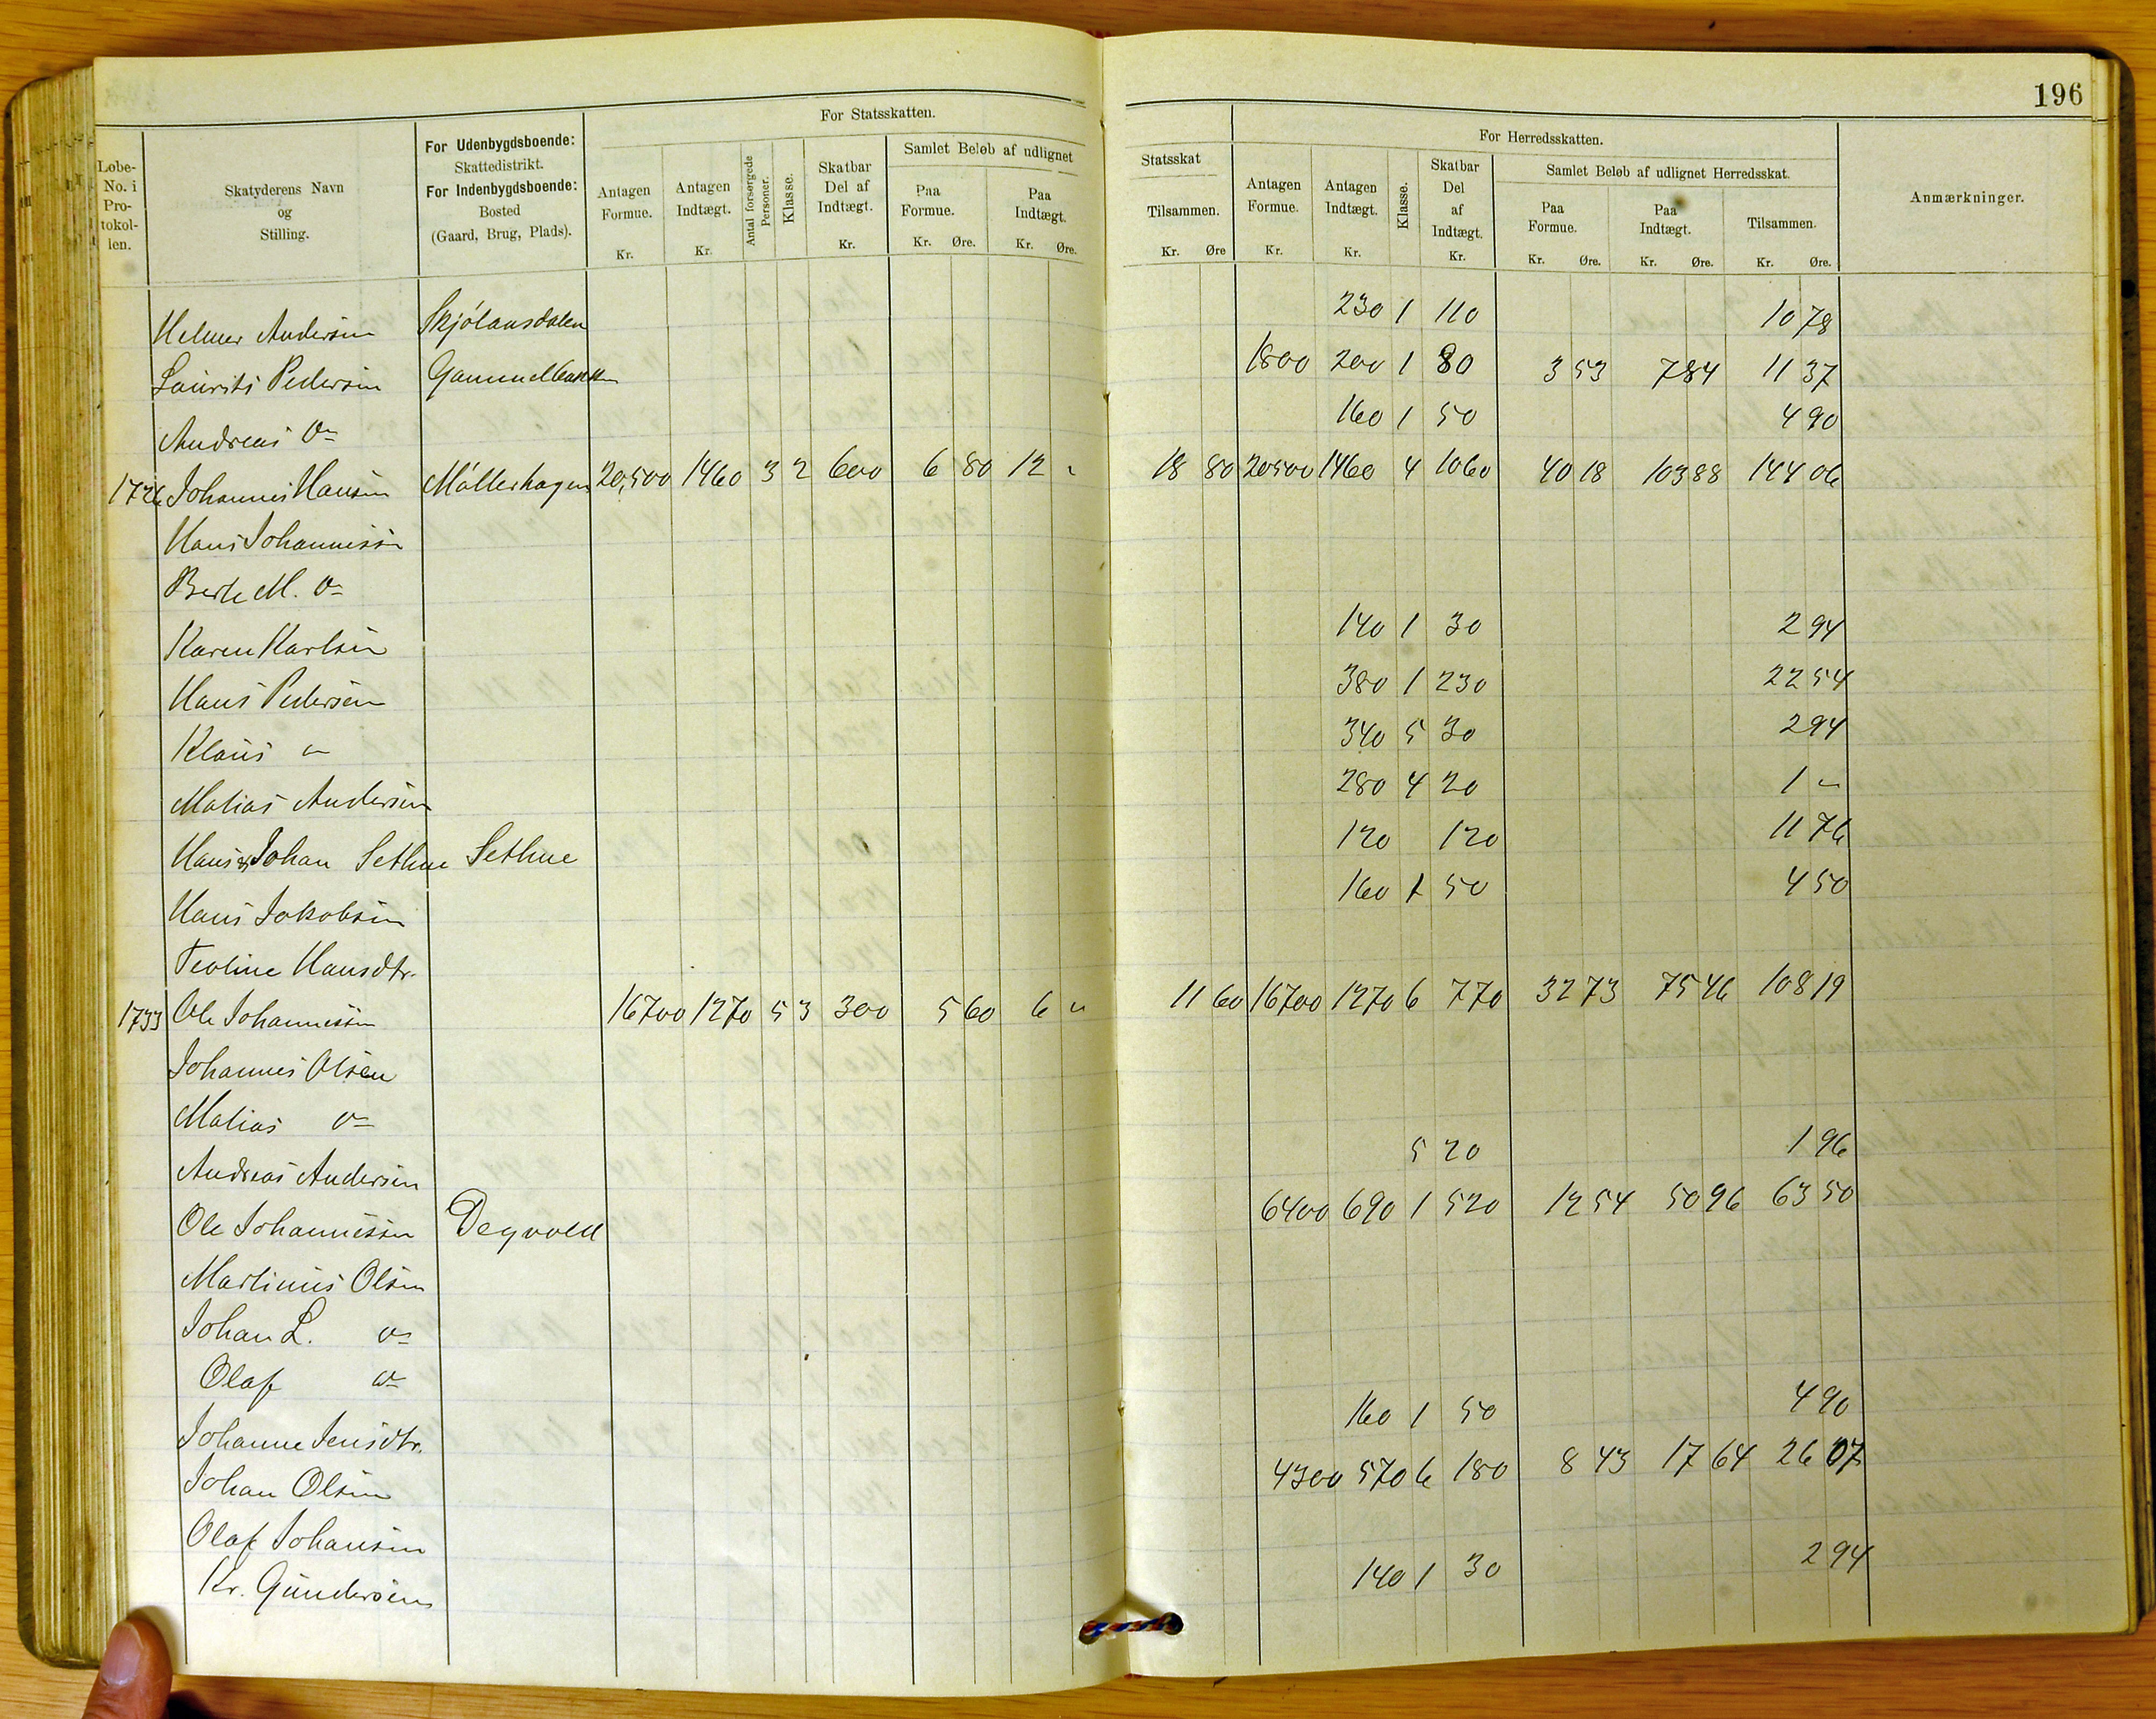 196
For Statsskatten.
For Herredsskatten.
Løbe-No. i Protokollen.
Skatyderens Navn og Stilling.
For Udenbygdsboende: Skattedistrikt. For Indenbygdsboende: Bosted (Gaard, Brug, Plads).
Antagen Formue. Kr.
Antagen Indtægt. Kr.
Antal forsørgede Personer.
Klasse.
Skatbar Del af Indtægt. Kr.
Samlet Beløb af udlignet
Paa Formue. Kr. Øre.
Paa Indtægt. Kr. Øre.
Statsskat
Tilsammen. Kr. Øre
Antagen Formue. Kr.
Antagen Indtægt. Kr.
Klasse.
Skatbar Del af Indtægt. Kr.
Samlet Beløb af udlignet Herredsskat.
Paa Formue. Kr. Øre.
Paa Indtægt. Kr. Øre.
Tilsammen. Kr. Øre.
Anmærkninger.
Helmer Andersen Skjölaasdalen 230 1 110 10 78
Laurits Pedersen Gammelbakken 1800 200 1 80 3 53 7 84 11 37
Andreas 160 1 50 4 90
1726 Johannes Hansen Möllerhagen 20,500 1460 3 2 600 6 80 12 " 18 80 20500 1460 4 1060 40 18 103 88 144 06
Hans Johannessen
Berte M.
Karen Karlsen 140 1 30 2 94
Hans Pedersen 380 1 230 22 54
Klaus " 340 5 30 2 94
Matias Andersen 280 4 20 1 "
Hans & Johan Sethne Sethne 120 120 11 76
Hans Jakobsen 160 1 50 4 50
Teoline Hansdtr.
1733 Ole Johannessen 16700 1270 5 3 300 5 60 6 " 11 60 16700 1270 6 770 32 73 75 46 108 19
Johannes Olsen
Matias
Andreas Andersen 5 20 1 96
Ole Johannessen Degvold 6400 690 1 520 12 54 50 96 63 50
Martinius Olsen
Johan L.
Olaf
Johanne Jensdtr. 160 1 50 4 90
Johan Olsen 4300 570 6 180 8 43 17 64 26 07
Olaf Johansen
Kr. Gundersen 140 1 30 2 94